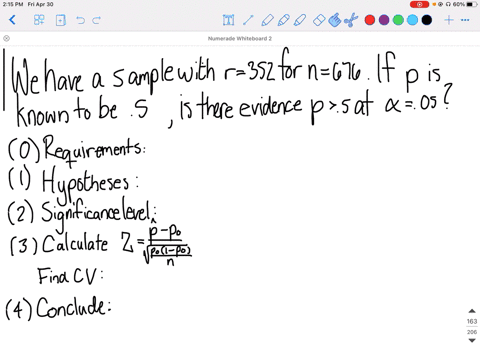 2:15 PM Fri Apr 30
60%
Numerade Whiteboard 2
We have a sample with r=352 for n=676. If p is
known to be .5, is there evidence p>.5 at α=.05?
(0) Requirements:
(1) Hypotheses:
(2) Significance level:
(3) Calculate Z = (p̂-p₀)/√(p₀(1-p₀)/n)
Find CV:
(4) Conclude:
163
206